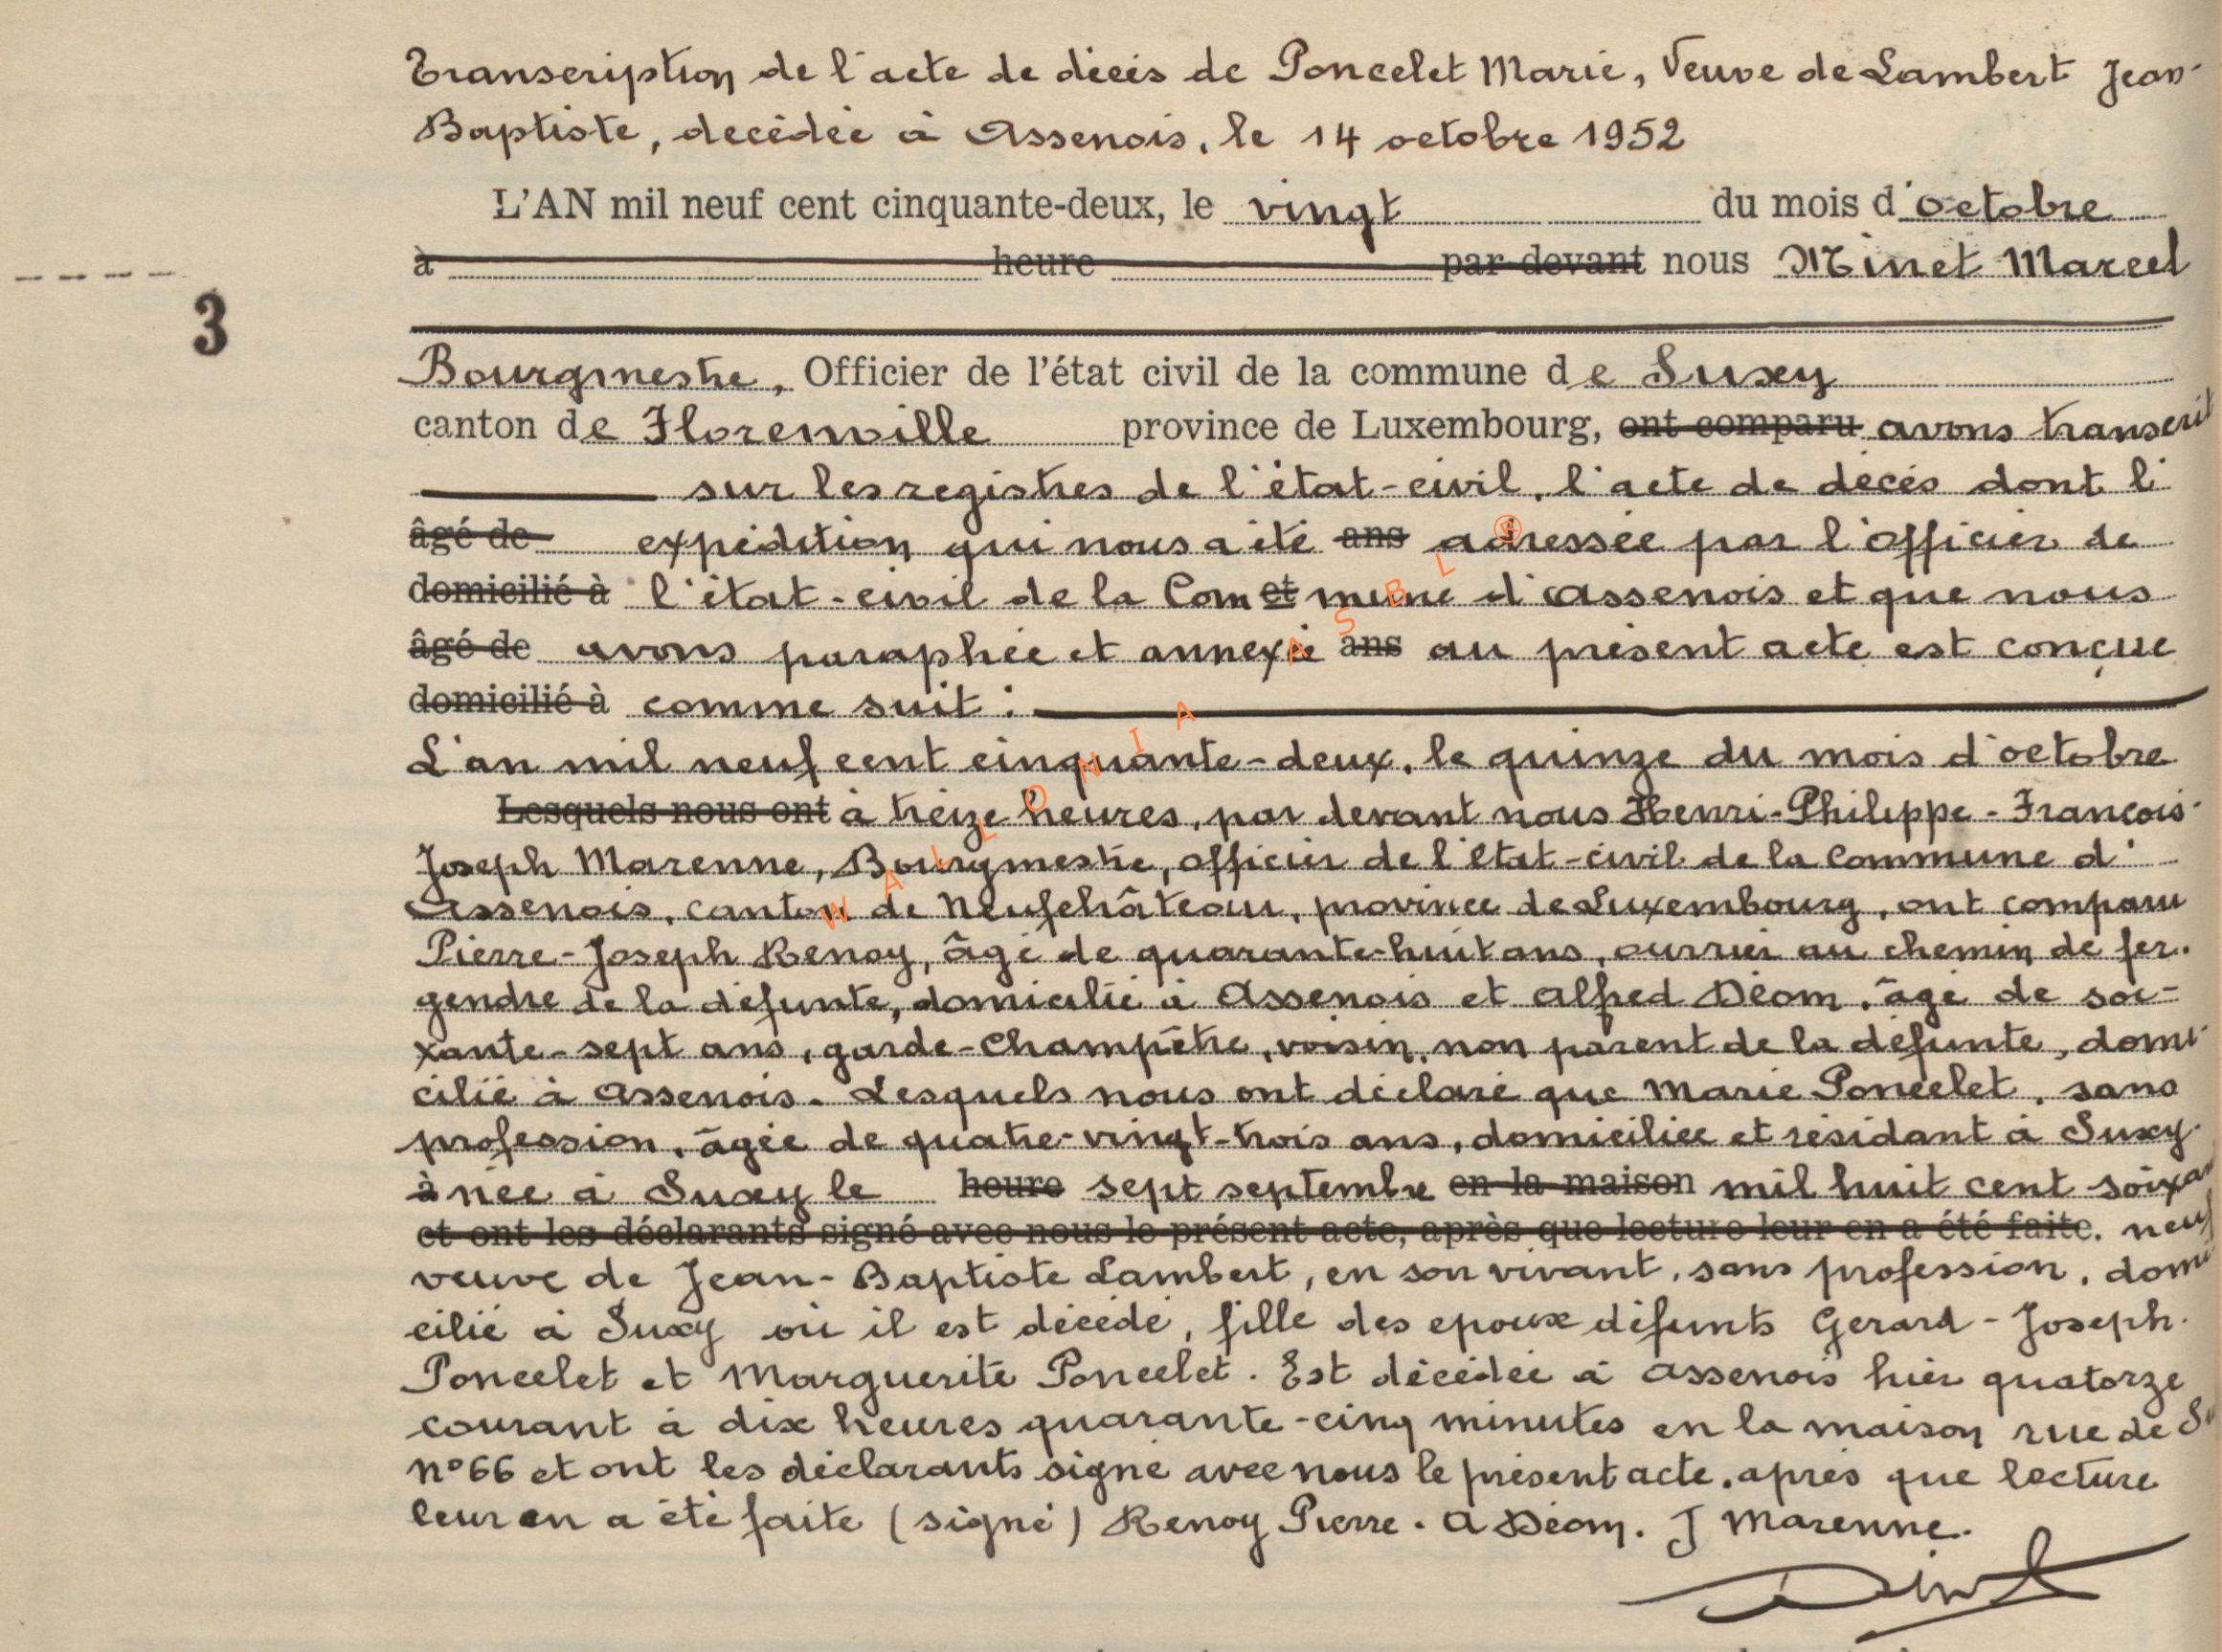 Transcription de l'acte de décès de Poncelet Marie, Veuve de Lambert Jean-
Baptiste, décédée à Assenois, le 14 octobre 1952
L'AN mil neuf cent cinquante-deux, le vingt du mois d'octobre
à heure par devant nous Minet Marcel
3
Bourgmestre, Officier de l'état civil de la commune de Suxy
canton de Florenville province de Luxembourg, ont comparu avons transcrit
sur les registres de l'état-civil, l'acte de décès dont l'
âgé de expédition qui nous a été ans adressée par l'officier de
domicilié à l'état-civil de la Com et mune d'Assenois et que nous
âgé de avons paraphée et annexée ans au présent acte est conçue
domicilié à comme suit :
L'an mil neuf cent cinquante-deux, le quinze du mois d'octobre
Lesquels nous ont à treize heures, par devant nous Henri-Philippe-François-
Joseph Marenne, Bourgmestre, officier de l'état-civil de la commune d'
Assenois, canton de Neufchâteau, province de Luxembourg, ont comparu
Pierre-Joseph Renoy, âgé de quarante-huit ans, ouvrier au chemin de fer.
gendre de la défunte, domicilié à Assenois et Alfred Déom, âgé de soi-
xante-sept ans, garde-champêtre, voisin, non parent de la défunte, domi-
cilié à Assenois. Lesquels nous ont déclaré que Marie Poncelet, sans
profession, âgée de quatre-vingt-trois ans, domiciliée et résidant à Suxy.
à née à Suxy le heure sept septembre en la maison mil huit cent soixan
et ont les déclarants signé avec nous le présent acte, après que lecture leur en a été faite. neuf
veuve de Jean-Baptiste Lambert, en son vivant, sans profession, domi
cilié à Suxy où il est décédé, fille des epoux défunts Gerard-Joseph.
Poncelet et Marguerite Poncelet. Est décédée à Assenois hier quatorze
courant à dix heures quarante-cinq minutes en la maison rue de
n°66 et ont les déclarants signé avec nous le présent acte, après que lecture
leur en a été faite (signé) Renoy Pierre. A Déom. J Marenne.
Minet
WALLONIA ASBL ®